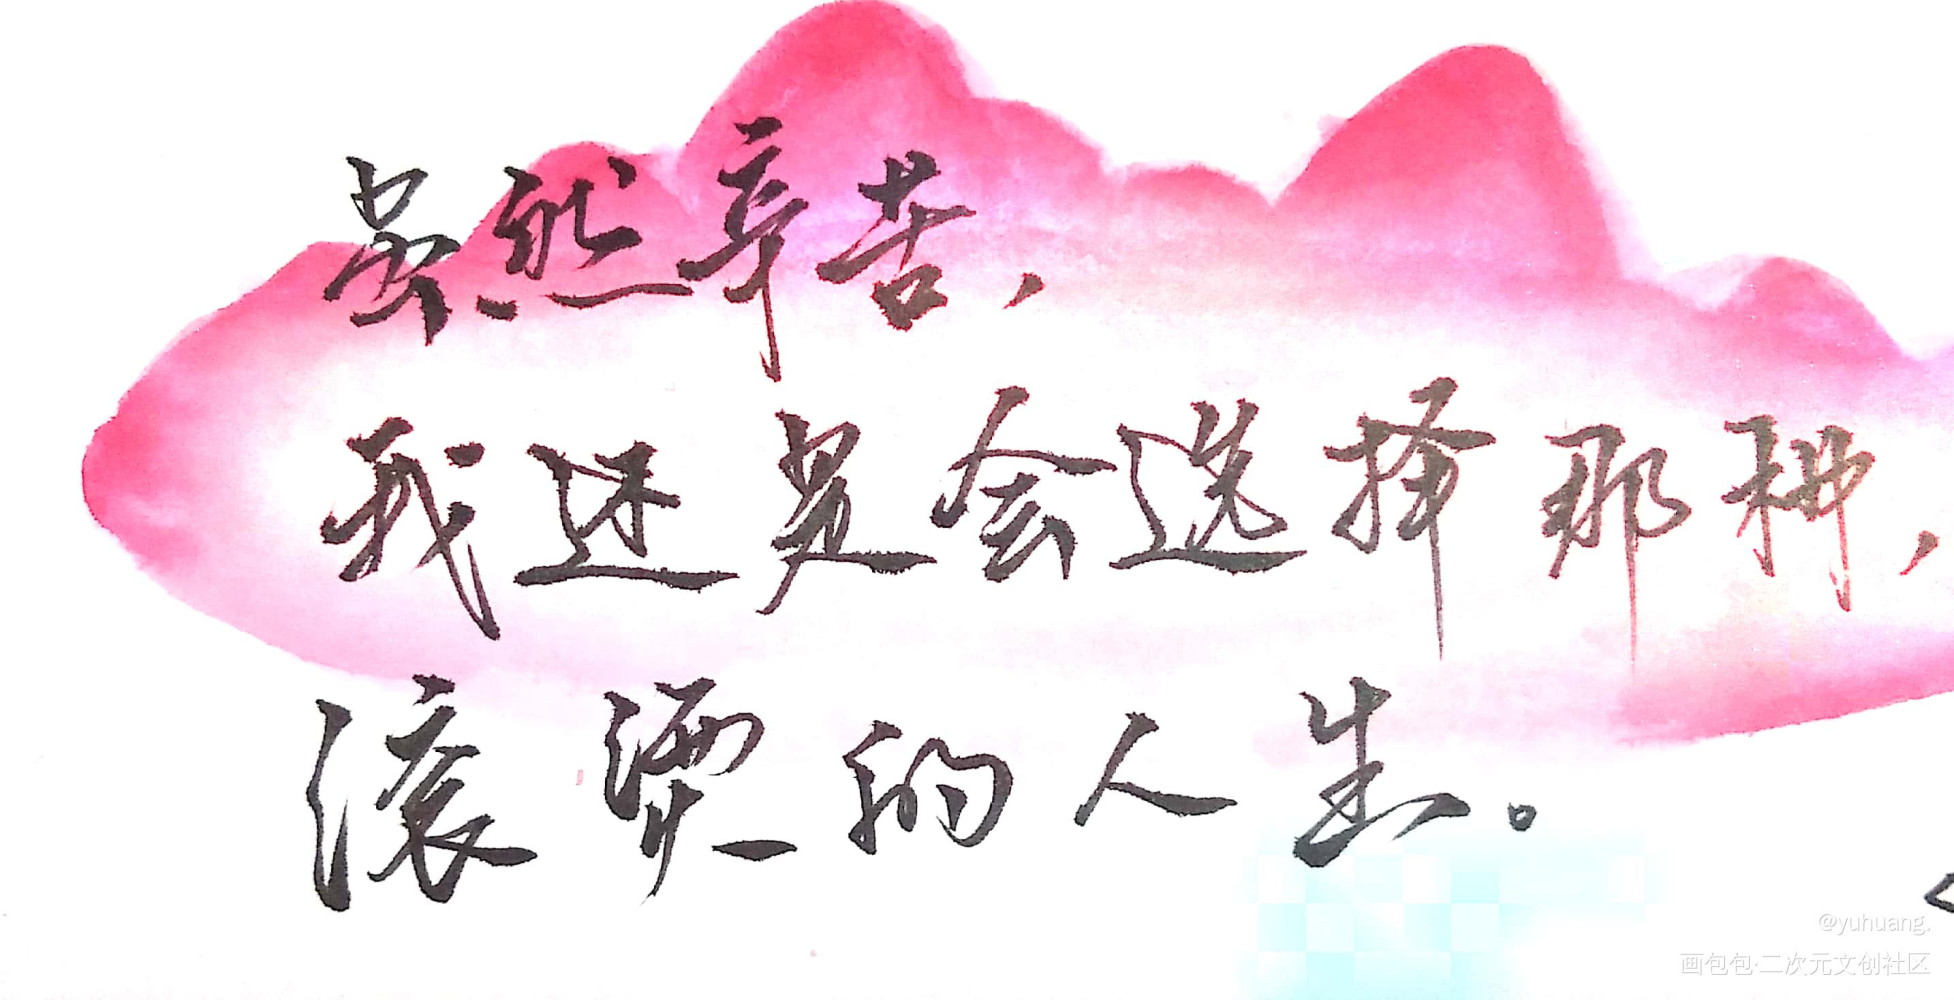 虽然辛苦，
我还是会选择那种，
滚烫的人生。
@yuhuang.
画包包·二次元文创社区